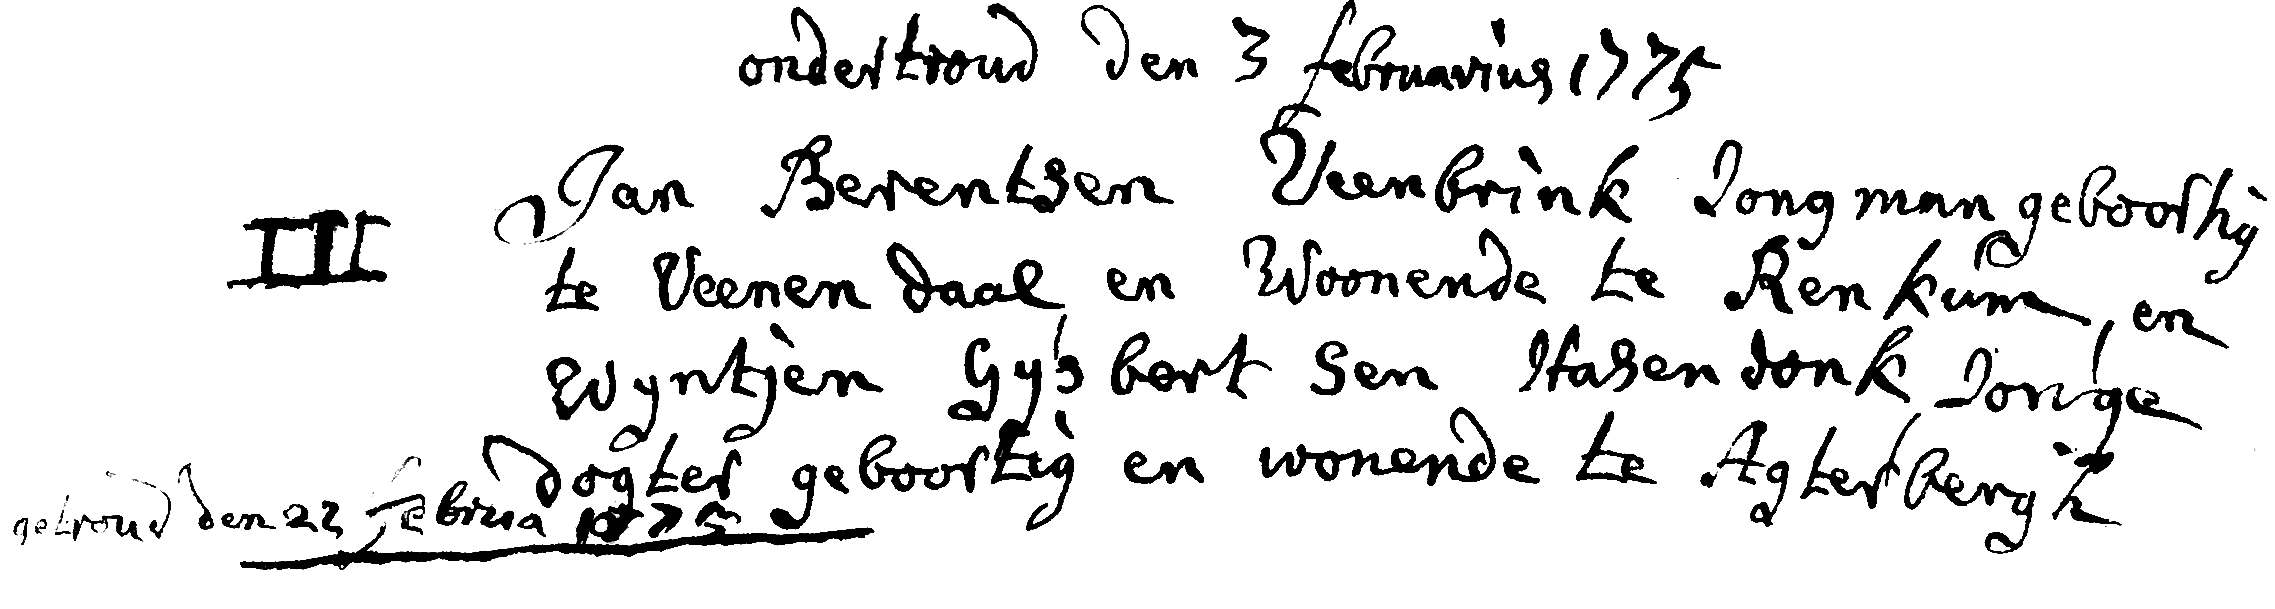 ondertroud den 3 februarius 1775
III Jan Berentsen Veenbrink Jongman geboortig
te Veenendaal en Woonende te Renkum, en
Wyntjen Gysbertsen Hasendonk Jonge
dogter geboortig en wonende te Agterbergh
getroud den 22 februa 1775